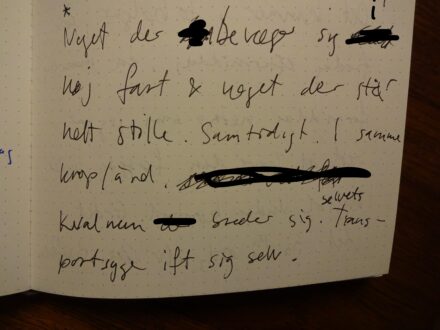 *
Noget der bevæger sig
høj fart & noget der står
helt stille. Samtidigt. I samme
krop/ånd.
selvets
Kvalmen breder sig. Trans-
portsyge ift sig selv.